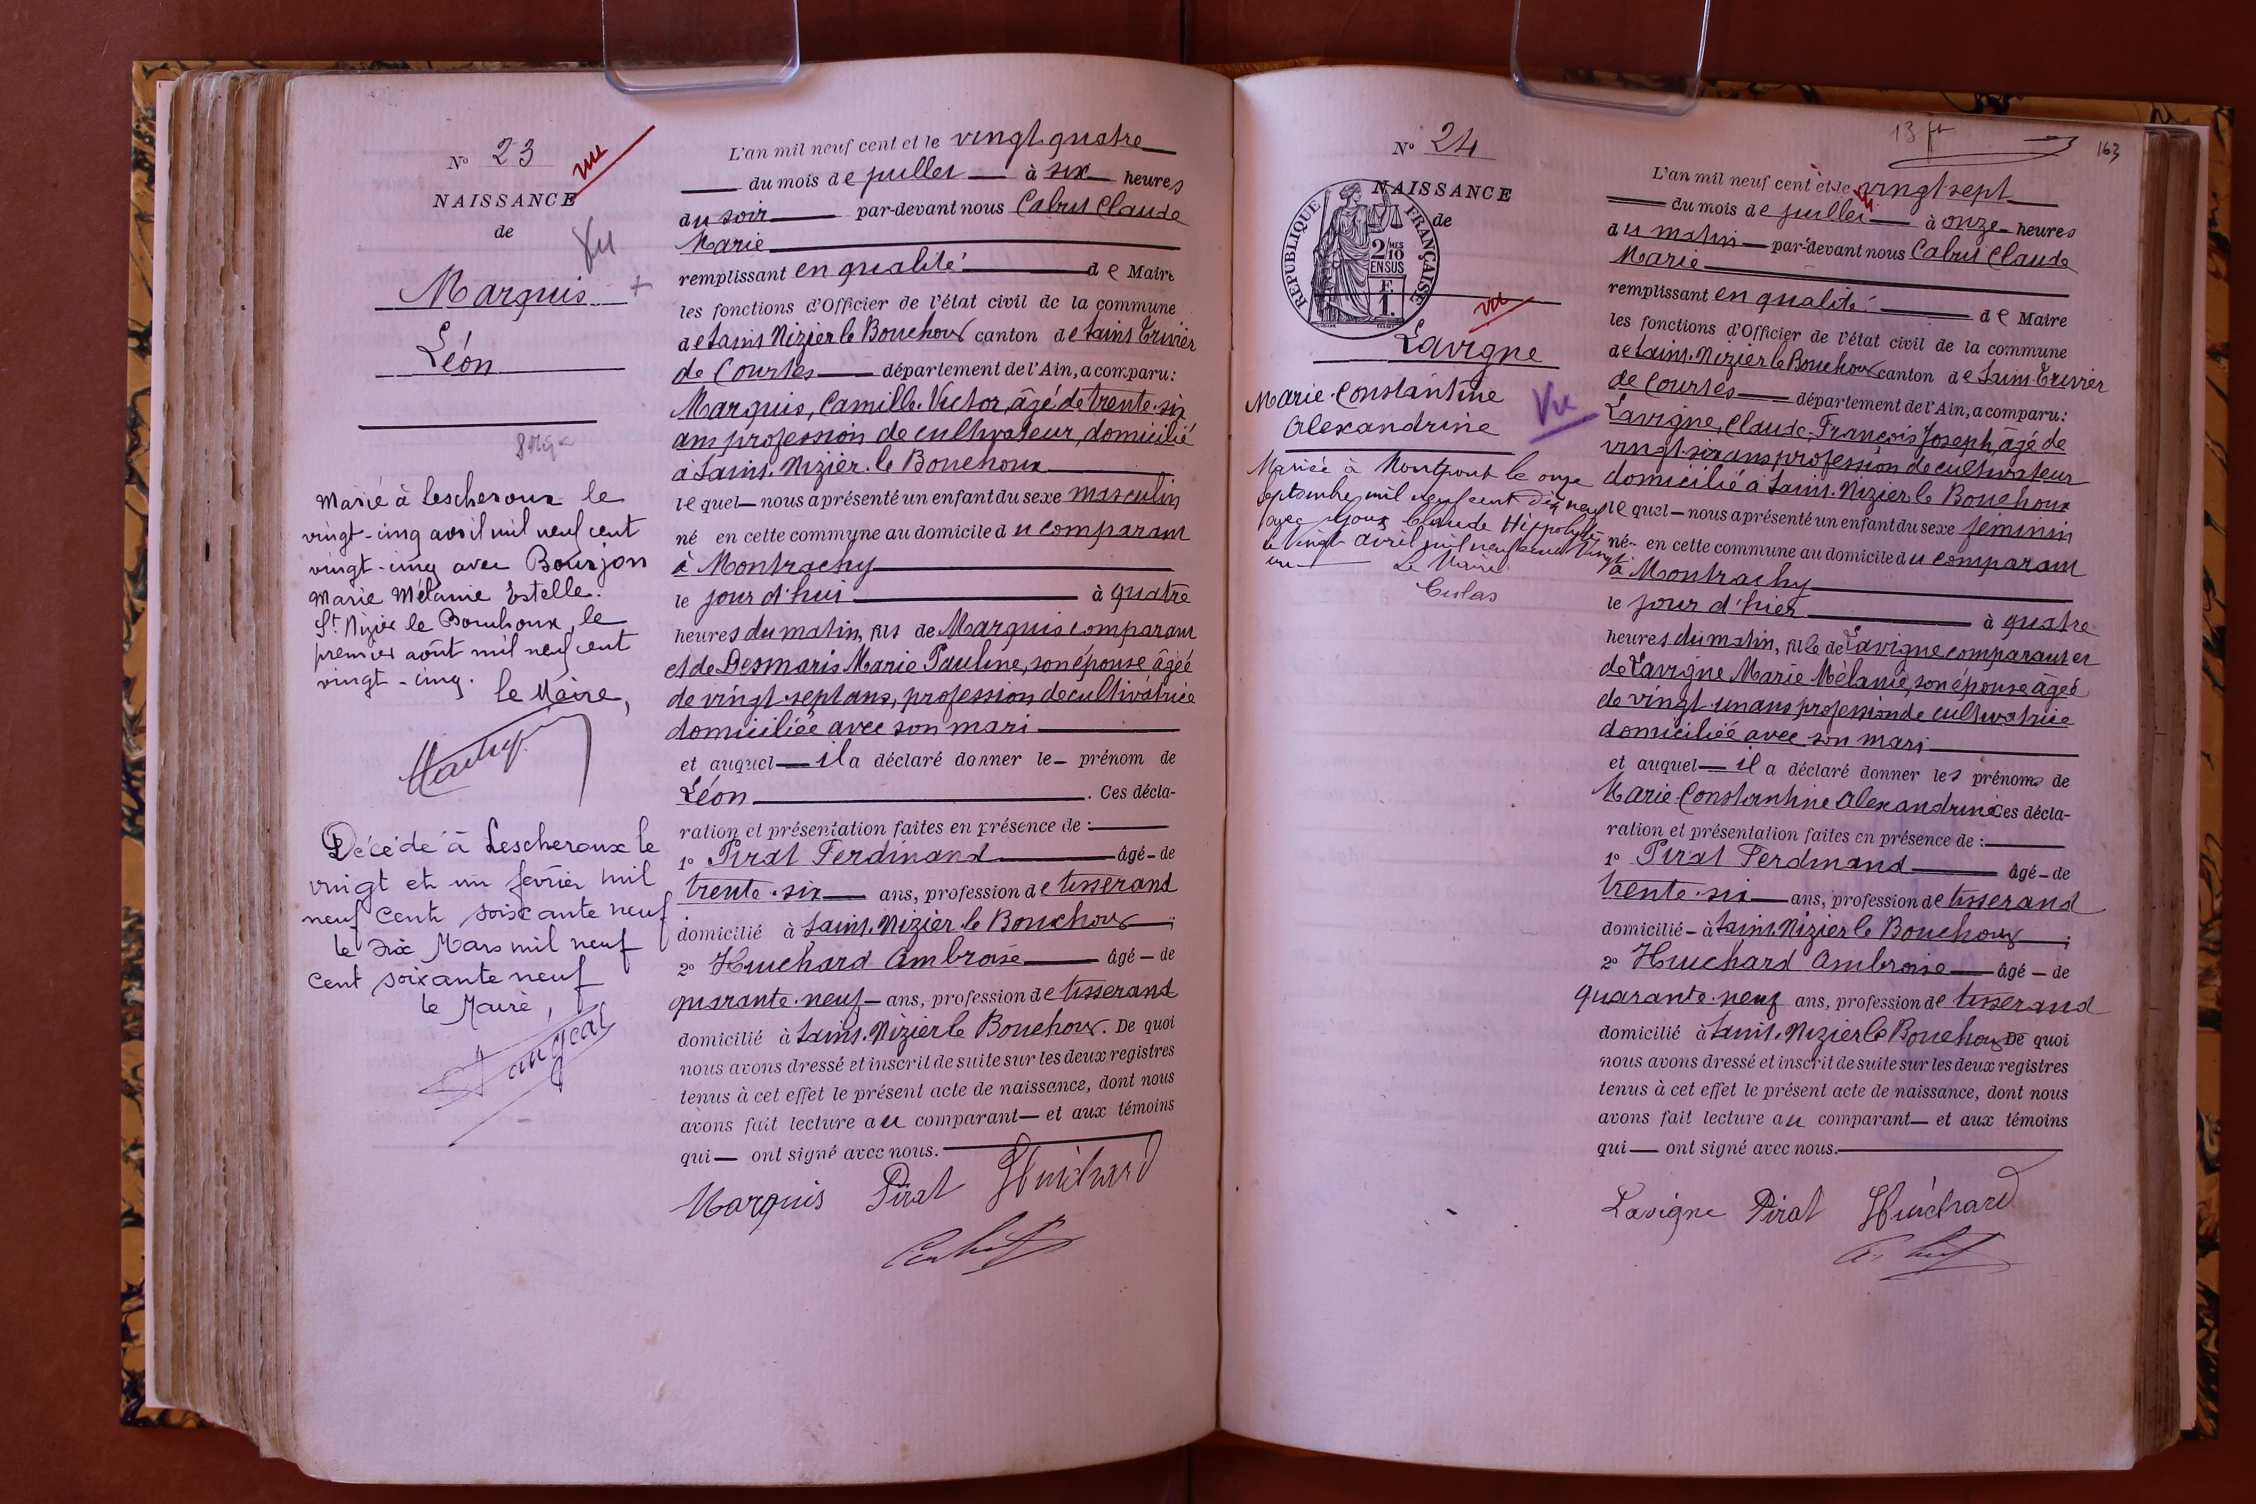 N° 23
vu
NAISSANCE
de
Vu
Marquis +
Léon
Marié à Lescheroux le
vingt-cinq avril mil neuf cent
vingt-cinq avec Bourjon
Marie Mélanie Estelle.
St Nizier le Bouchoux, le
premier août mil neuf cent
vingt-cinq.
le Maire,
Décédé à Lescheroux le
vingt et un février mil
neuf cent soixante neuf
le dix Mars mil neuf
cent soixante neuf
le Maire,
L'an mil neuf cent et le vingt quatre
du mois de juillet à six heures
du soir par-devant nous Cabut Claude
Marie
remplissant en qualité de Maire
les fonctions d'Officier de l'état civil de la commune
de Saint Nizier le Bouchoux canton de Saint Trivier
de Courtes département de l'Ain, a comparu:
Marquis, Camille Victor, âgé de trente-six
ans profession de cultivateur, domicilié
à Saint-Nizier-le Bouchoux
lequel nous a présenté un enfant du sexe masculin
né en cette commune au domicile du comparant
à Montrachy
le jour d'hui à quatre
heures du matin, fils de Marquis comparant
et de Desmaris Marie Pauline, son épouse âgée
de vingt-sept ans, profession de cultivatrice
domiciliée avec son mari
et auquel il a déclaré donner le prénom de
Léon. Ces décla-
ration et présentation faites en présence de :
1° Pirat Ferdinand âgé de
trente-six ans, profession de tisserand
domicilié à Saint-Nizier-le Bouchoux ;
2° Huichard Ambroise âgé de
quarante-neuf ans, profession de tisserand
domicilié à Saint-Nizier le Bouchoux. De quoi
nous avons dressé et inscrit de suite sur les deux registres
tenus à cet effet le présent acte de naissance, dont nous
avons fait lecture au comparant et aux témoins
qui ont signé avec nous.
Marquis Pirat Huichard
Cabut
13 ft
163
N° 24
NAISSANCE
de
REPUBLIQUE FRANÇAISE
2/10 MES
EN SUS
F.
1.
vu
Lavigne
Marie-Constantine
Alexandrine
Vu
Mariée à Montpont le onze
septembre mil neuf cent dix neuf
avec Claude Hippolyte
le vingt avril mil neuf cent vingt
un
Le Maire
L'an mil neuf cent et le vingt sept
du mois de juillet à onze heures
du matin par-devant nous Cabut Claude
Marie
remplissant en qualité de Maire
les fonctions d'Officier de l'état civil de la commune
de Saint-Nizier le Bouchoux canton de Saint-Trivier
de Courtes département de l'Ain, a comparu:
Lavigne, Claude-François Joseph, âgé de
vingt-six ans profession de cultivateur
domicilié à Saint-Nizier le Bouchoux
lequel nous a présenté un enfant du sexe féminin
né en cette commune au domicile du comparant
à Montrachy
le jour d'hier à quatre
heures du matin, fille de Lavigne comparant et
de Lavigne Marie Mélanie, son épouse âgée
de vingt-un ans profession de cultivatrice
domiciliée avec son mari
et auquel il a déclaré donner les prénoms de
Marie-Constantine Alexandrine Ces décla-
ration et présentation faites en présence de :
1° Pirat Ferdinand âgé de
trente-six ans, profession de tisserand
domicilié à Saint Nizier le Bouchoux ;
2° Huichard Ambroise âgé de
quarante-neuf ans, profession de tisserand
domicilié à Saint-Nizier le Bouchoux De quoi
nous avons dressé et inscrit de suite sur les deux registres
tenus à cet effet le présent acte de naissance, dont nous
avons fait lecture au comparant et aux témoins
qui ont signé avec nous.
Lavigne Pirat Huichard